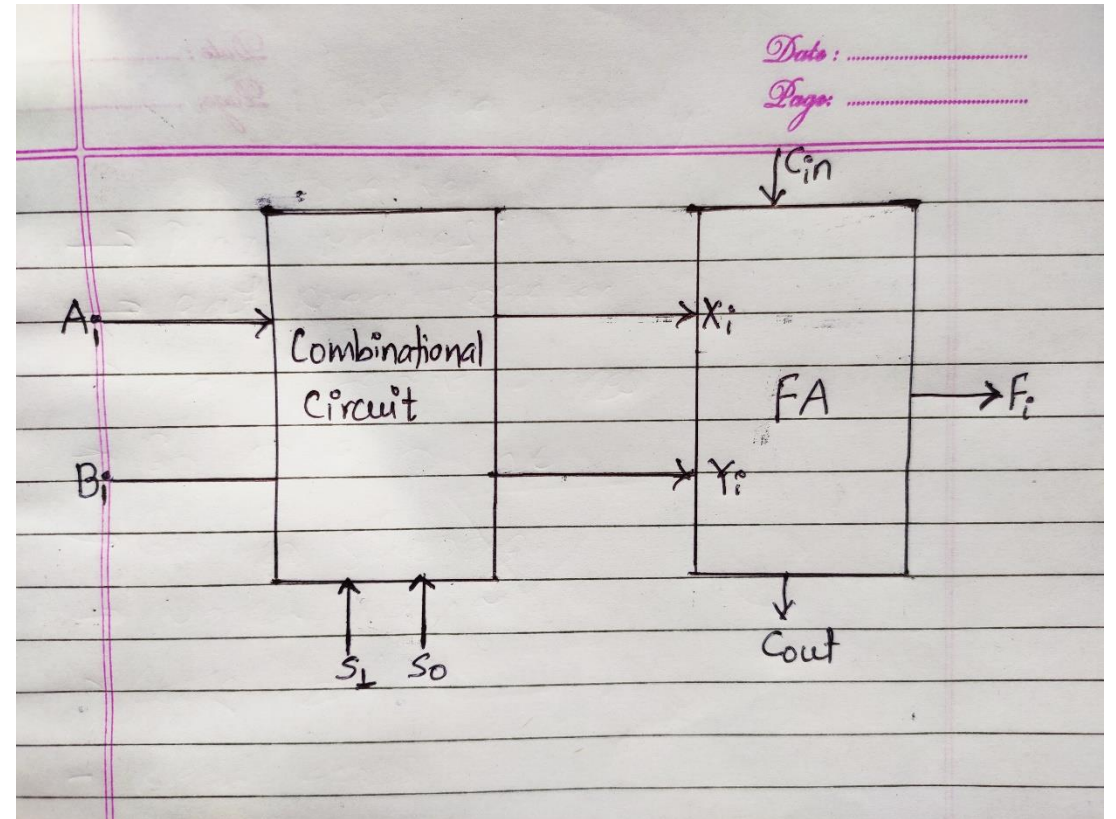 Date :
Page:
Cin
Ai
Xi
Combinational
Circuit
FA
Fi
Bi
Yi
S1
S0
Cout